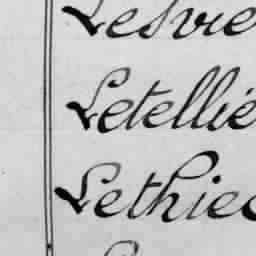 Lesvie
Letellié
Lethiec